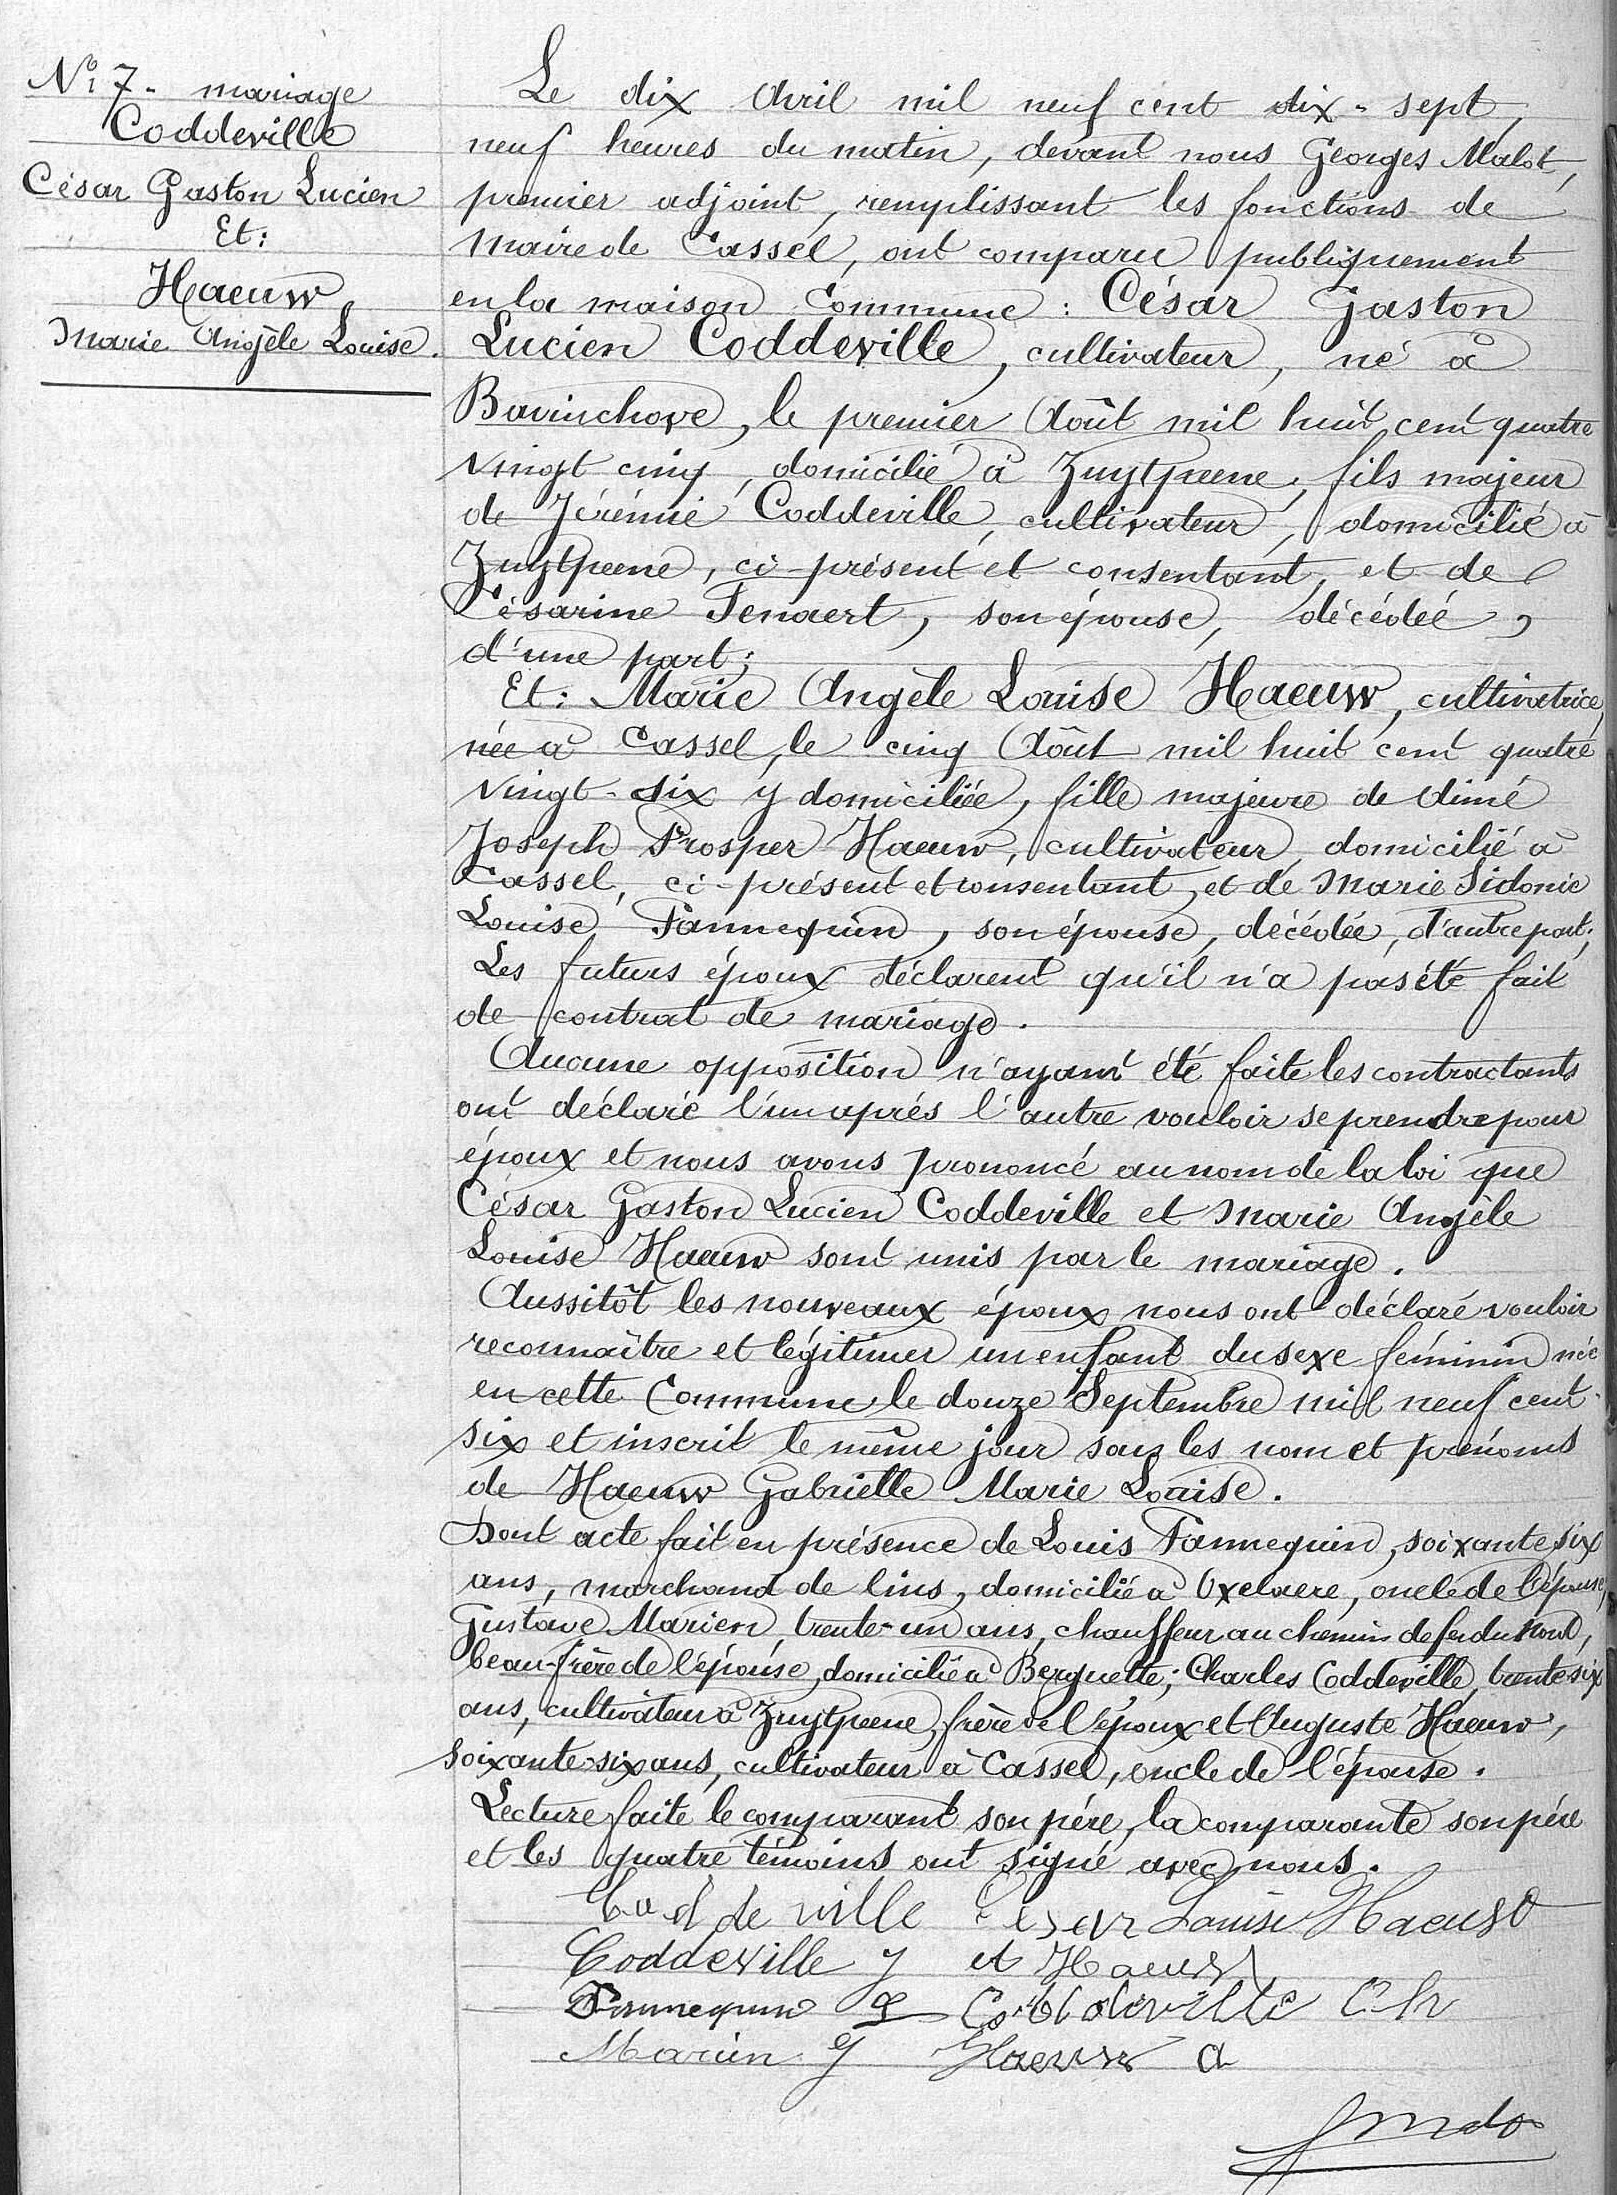 N° 7 - mariage
Coddeville
César Gaston Lucien
Et:
Haeuw
Marie Angèle Louise.
Le dix Avril mil neuf cent dix-sept,
neuf heures du matin, devant nous Georges Malot,
premier adjoint, remplissant les fonctions de
Maire de Cassel, ont comparu publiquement
en la maison Commune : César Gaston
Lucien Coddeville, cultivateur, né à
Bavinchove, le premier Août mil huit cent quatre
vingt cinq, domicilié à Zuytpeene, fils majeur
de Jérémie Coddeville, cultivateur, domicilié à
Zuytpeene, ci-présent et consentant, et de
Césarine Fenaert, son épouse, décédée,
d'une part;
Et: Marie Angèle Louise Haeuw, cultivatrice,
née à Cassel, le cinq Août mil huit cent quatre
vingt-six y domiciliée, fille majeure de Aimé
Joseph Prosper Haeuw, cultivateur, domicilié à
Cassel, ci-présent et consentant, et de Marie Sidonie
Louise Fannequin, son épouse, décédée, d'autre part;
Les futurs époux déclarent qu'il n'a pas été fait
de contrat de mariage.
Aucune opposition n'ayant été faite les contractants
ont déclaré l'un après l'autre vouloir se prendre pour
époux et nous avons prononcé au nom de la loi que
César Gaston Lucien Coddeville et Marie Angèle
Louise Haeuw sont unis par le mariage.
Aussitôt les nouveaux époux nous ont déclaré vouloir
reconnaître et légitimer un enfant du sexe féminin née
en cette Commune le douze Septembre mil neuf cent
six et inscrit le même jour sous les nom et prénoms
de Haeuw Gabrielle Marie Louise.
Dont acte fait en présence de Louis Fannequin, soixante six
ans, marchand de lins, domicilié à Oxelaere, oncle de l'épouse,
Gustave Marien, trente-un ans, chauffeur au chemin de fer du Nord,
beau-frère de l'épouse, domicilié à Berguette; Charles Coddeville, trente six
ans, cultivateur à Zuytpeene, frère de l'époux et Auguste Haeuw,
soixante-six ans, cultivateur à Cassel, oncle de l'épouse.
Lecture faite le comparant son père, la comparante son père
et les quatre témoins ont signé avec nous.
Coddeville César Louise Haeuw
Coddeville J et Haeuw A
Fannequin L Coddeville Ch
Marien G Haeuw A